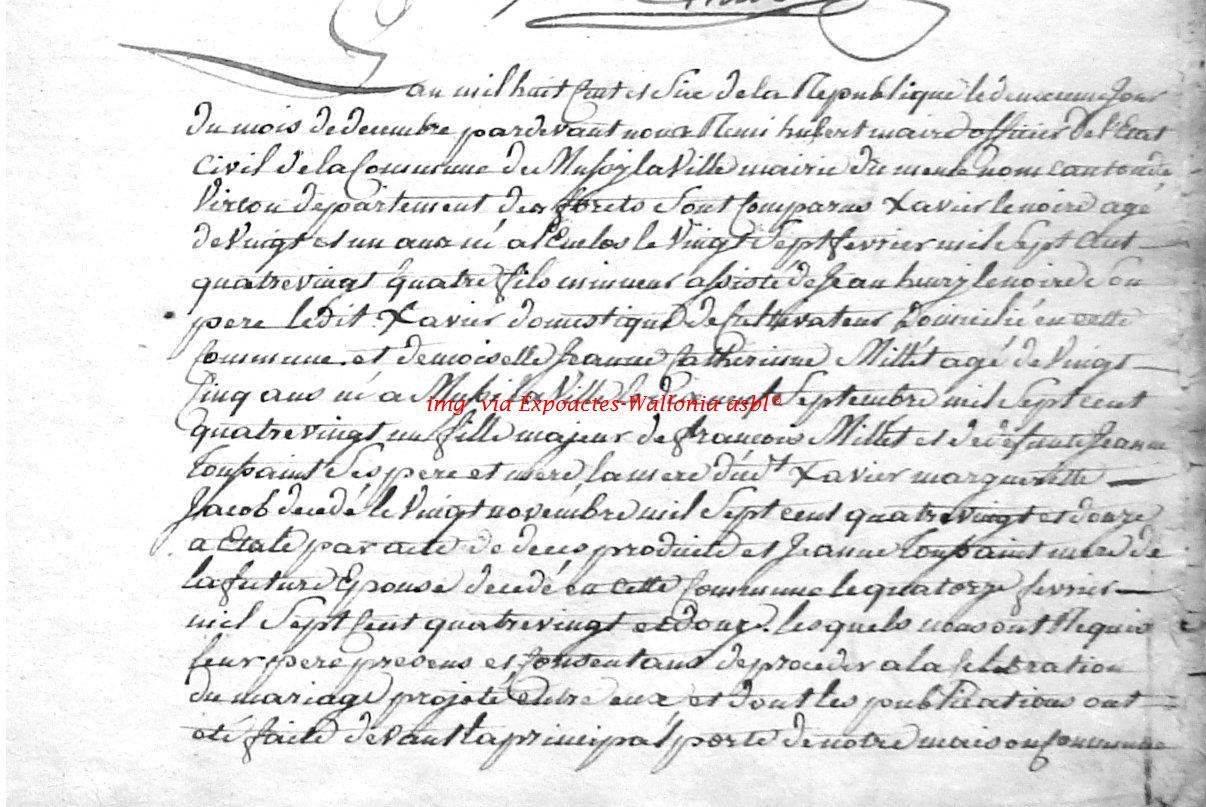 au mil huit Cent et Six de la Republique le deuxieme Jour
Du mois de decembre pardevant nous Remi hubert maire officier de l'Etat
civil de la Commune de Mussy la Ville mairie du meme nom canton de
Virton departement des forets Sont Comparus Xavier lenoire agé
de Vingt et un ans né a le Vingt Sept fevrier mil Sept Cent
quatrevingt quatre fils mineur assisté de Jean henry lenoire Son
pere ledit Xavier domestique de Cultivateur Domicilié en cette
Commune et demoiselle Jeanne Catherinne Millet agé de Vingt
Cinq ans né a la Ville Septembre mil Sept cent
img via Expoactes-Wallonia asbl©
quatrevingt un fille majeur de francois Millet et de defunte Jeanne
toussaint Ses pere et mere la mere dudt Xavier marguerite
Jacob decedé le Vingt novembre mil Sept cent quatrevingt et douze
a Etale par acte de deces produite et Jeanne toussaint mere de
la future Epouse decedé en cette Commune le quatorze fevrier
mil Sept Cent quatrevingt et douze. lesquels nous ont Requis
leur pere presens et Consentans de proceder a la Celebration
du mariage projeté entre eux et dont les publications ont
eté faite devant la principal porte de notre maison Commune